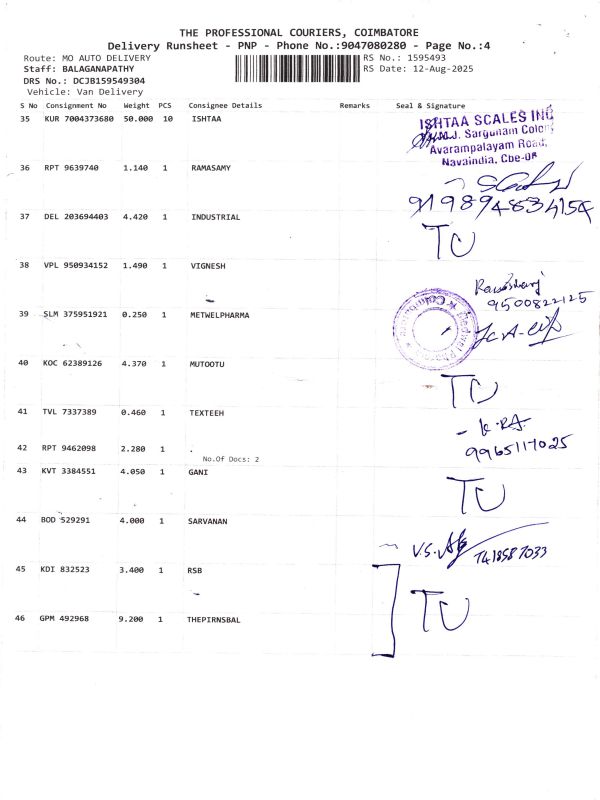 THE PROFESSIONAL COURIERS, COIMBATORE
Delivery Runsheet - PNP - Phone No.:9047080280 - Page No.:4
Route: MO AUTO DELIVERY
RS No.: 1595493
Staff: BALAGANAPATHY
RS Date: 12-Aug-2025
DRS No.: DCJB159549304
Vehicle: Van Delivery
S No Consignment No Weight PCS Consignee Details Remarks Seal & Signature
35 KUR 7004373680 50.000 10 ISHTAA
ISHTAA SCALES INC
M.J. Sargunam Colony
Avarampalayam Road,
Navaindia, Cbe-
36 RPT 9639740 1.140 1 RAMASAMY
919894834154
37 DEL 203694403 4.420 1 INDUSTRIAL
TU
38 VPL 950934152 1.490 1 VIGNESH
9500822125
39 SLM 375951921 0.250 1 METWELPHARMA
40 KOC 62389126 4.370 1 MUTOOTU
TU
41 TVL 7337389 0.460 1 TEXTEEH
42 RPT 9462098 2.280 1 .
9965117025
No.Of Docs: 2
43 KVT 3384551 4.050 1 GANI
TU
44 BOD 529291 4.000 1 SARVANAN
V.S. 7418587033
45 KDI 832523 3.400 1 RSB
TU
46 GPM 492968 9.200 1 THEPIRNSBAL